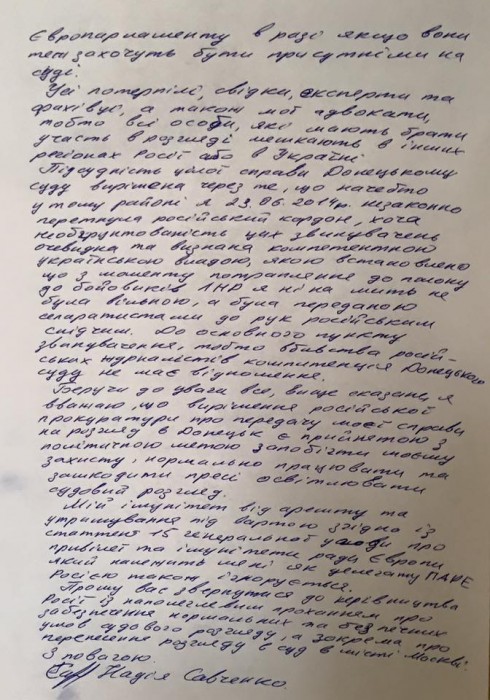 Європарламенту в разі якщо вони
теж захочуть бути присутніми на
суді.
Усі потерпілі, свідки, експерти та
фахівці, а також мої адвокати,
тобто всі особи, які мають брати
участь в розгляді мешкають в інших
регіонах Росії або в Україні
Підсудність цілої справи Донецькому
суду вирішена через те, що начебто
у тому районі я 23.06.2014р. незаконно
перетнула російський кордон, хоча
необґрунтованість цих звинувачень
очевидна та визнана компетентною
українською владою, якою встановлено
що з моменту потрапляння до полону
до бойовиків ЛНР я ні на мить не
була вільною, а була переданою
сепаратистами до рук російським
слідчим. До основного пункту
звинувачення, тобто вбивства російсь-
ських журналістів компетенція Донецького
суду не має відношення.
Беручи до уваги все, вище сказане, я
вважаю, що вирішення російської
прокуратури про передачу моєї справи
на розгляд в Донецьк є прийнятою з
політичною метою запобігти моєму
захисту, нормально працювати та
зашкодити пресі освітлювати
судовий розгляд.
Мій імунітет від арешту та
утримування під вартою згідно із
статтею 15 генеральної угоди про
привілеї та імунітети ради Європи
який належить мені як делегату ПАРЕ
Росією також ігнорується.
Прошу вас звернутися до керівництва
Росії із наполегливим проханням про
забезпечення нормальних та безпечних
умов судового розгляду, а зокрема про
перенесення розгляду в суд в місті Москві.
З повагою.
Надія Савченко